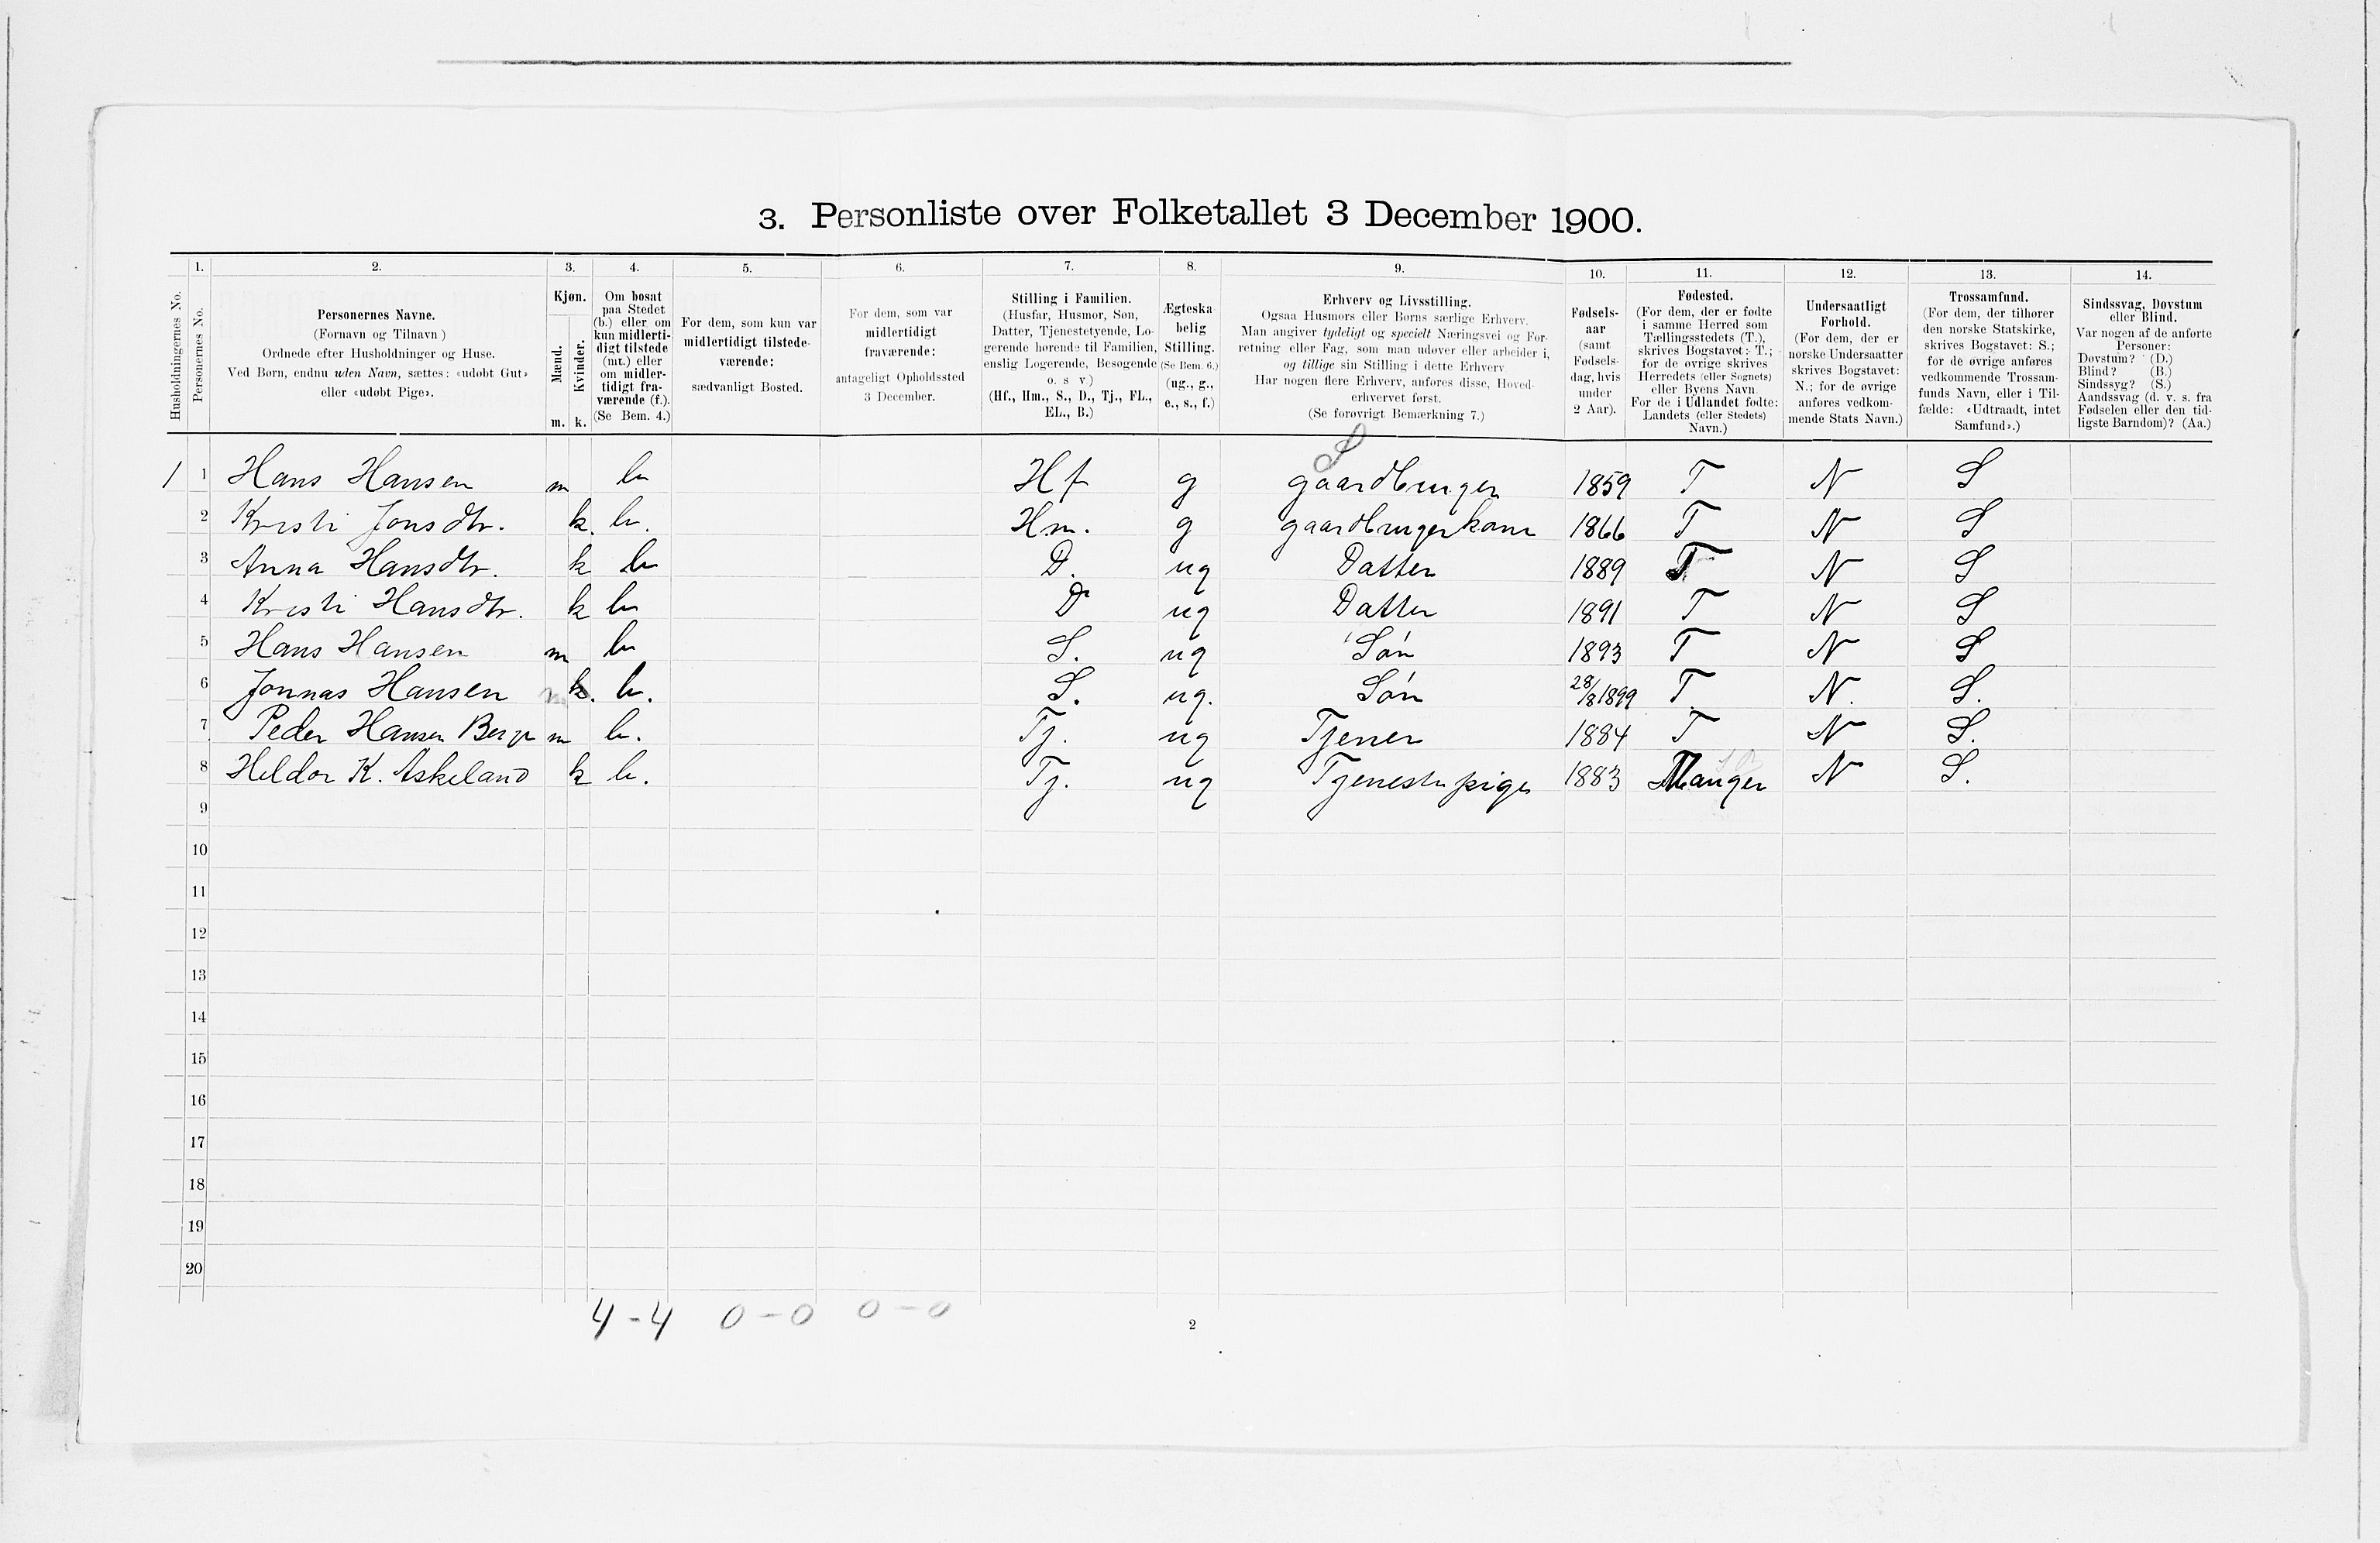 3. Personliste over Folketallet 3 December 1900.
1. 2. 3. 4. 5. 6. 7. 8. 9. 10. 11. 12. 13. 14.
Husholdningernes No.
Personernes No.
Personernes Navne.
(Fornavn og Tilnavn)
Ordnede efter Husholdninger og Huse.
Ved Børn, endnu uden Navn, sættes: «udøbt Gut»
eller «udøbt Pige».
Kjøn.
Mænd.
Kvinder.
m. k.
Om bosat
paa Stedet
(b.) eller om
kun midlerti-
digt tilstede
(mt.) eller
om midler-
tidigt fra-
værende (f.).
(Se Bem. 4.)
For dem, som kun var
midlertidigt tilstede-
værende:
sædvanligt Bosted.
For dem, som var
midlertidigt
fraværende:
antageligt Opholdssted
3 December.
Stilling i Familien.
(Husfar, Husmor, Søn,
Datter, Tjenestetyende, Lo-
gerende hørende til Familien,
enslig Logerende, Besøgende
o. s v.)
(Hf., Hm., S., D., Tj., FL.,
EL., B.)
Ægteska-
belig
Stilling.
(Se Bem. 6.)
(ug., g.,
e., s., f.)
Erhverv og Livsstilling.
Ogsaa Husmors eller Børns særlige Erhverv.
Man angiver tydeligt og specielt Næringsvei og For-
retning eller Fag, som man udøver eller arbeider i,
og tillige sin Stilling i dette Erhverv
Har nogen flere Erhverv, anføres disse, Hoved-
erhvervet først.
(Se forøvrigt Bemærkning 7.)
Fødsels-
aar
(samt
Fødsels-
dag, hvis
under
2 Aar).
Fødested.
(For dem, der er fødte
i samme Herred som
Tællingsstedets (T.),
skrives Bogstavet: T.;
for de øvrige skrives
Herredets (eller Sognets)
eller Byens Navn
For de i Udlandet fødte:
Landets (eller Stedets)
Navn.)
Undersaatligt
Forhold.
(For dem, der er
norske Undersaatter
skrives Bogstavet:
N.; for de øvrige
anføres vedkom-
mende Stats Navn.)
Trossamfund.
(For dem, der tilhører
den norske Statskirke,
skrives Bogstavet: S.;
for de øvrige anføres
vedkommende Trossam-
funds Navn, eller i Til-
fælde: «Udtraadt, intet
Samfund».)
Sindssvag, Døvstum
eller Blind.
Var nogen af de anførte
Personer:
Døvstum? (D.)
Blind? (B.)
Sindssyg? (S.)
Aandssvag (d. v. s. fra
Fødselen eller den tid-
ligste Barndom)? (Aa.)
S
1 1 Hans Hansen m b Hf g gaardbruger 1859 T N S
2 Kristi Jonsdtr. k. b. Hm. g gaardbrugerkone 1866 T N S
3 Anna Hansdtr. k b D. ug Datter 1889 T N S
4 Kristi Hansdtr. k b D ug Datter 1891 T N S
5 Hans Hansen m b S. ug Søn 1893 T N S
6 Jonnas Hansen m k. b. S. ug. Søn 28/8 1899 T. N. S.
7 Peder Hansen Berge m b. Tj. ug Tjener 1884 T N S.
8 Heldor K. Askeland k b. Tj. ug Tjenestepige 1883 Manger N S.
9
10
11
12
13
14
15
16
17
18
19
20
4-4 0-0 0-0
2